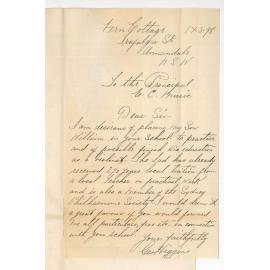 Fern Cottage 17.3.98
Trafalgar St
Annandale
N.S.W
To the Principal
E. C. Music
Dear Sir
I am desirous of placing my Son
William in your School to practice
and if possible finish his education
as a Violinist. The lad has already
received 2½ years local tuition from
a local Teacher in practical work
and is also a member of the Sydney
Philharmonic Society. I would deem it
a great favour if you would forward
me all particulars, fees etc. in connection
with your school.
Yours faithfully
Higgins